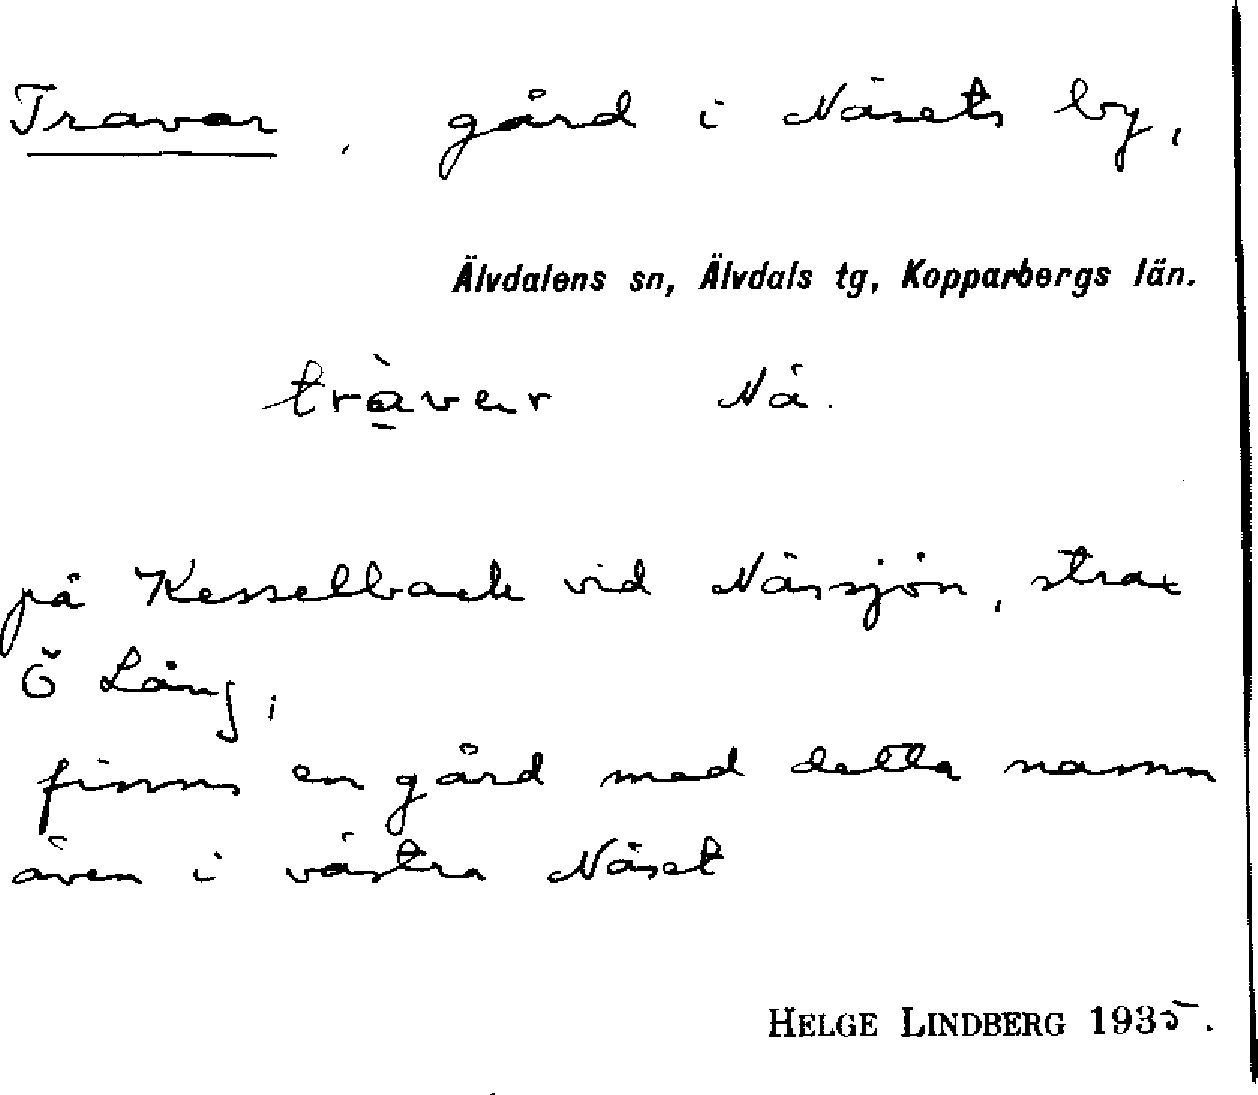 Travar, gård i Näsets by,
Älvdalens sn, Älvdals tg, Kopparbergs län.
tràvar Nä.
på Kesselback vid Nässjön, strax
Ö Lång,
finns en gård med detta namn
även i västra Näset
HELGE LINDBERG 1935.